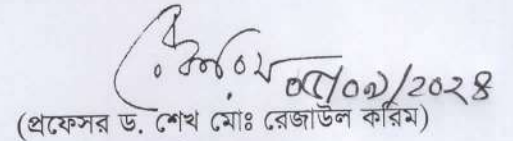 ০৫/০৯/2028
(প্রফেসর ড. শেখ মোঃ রেজাউল করিম)